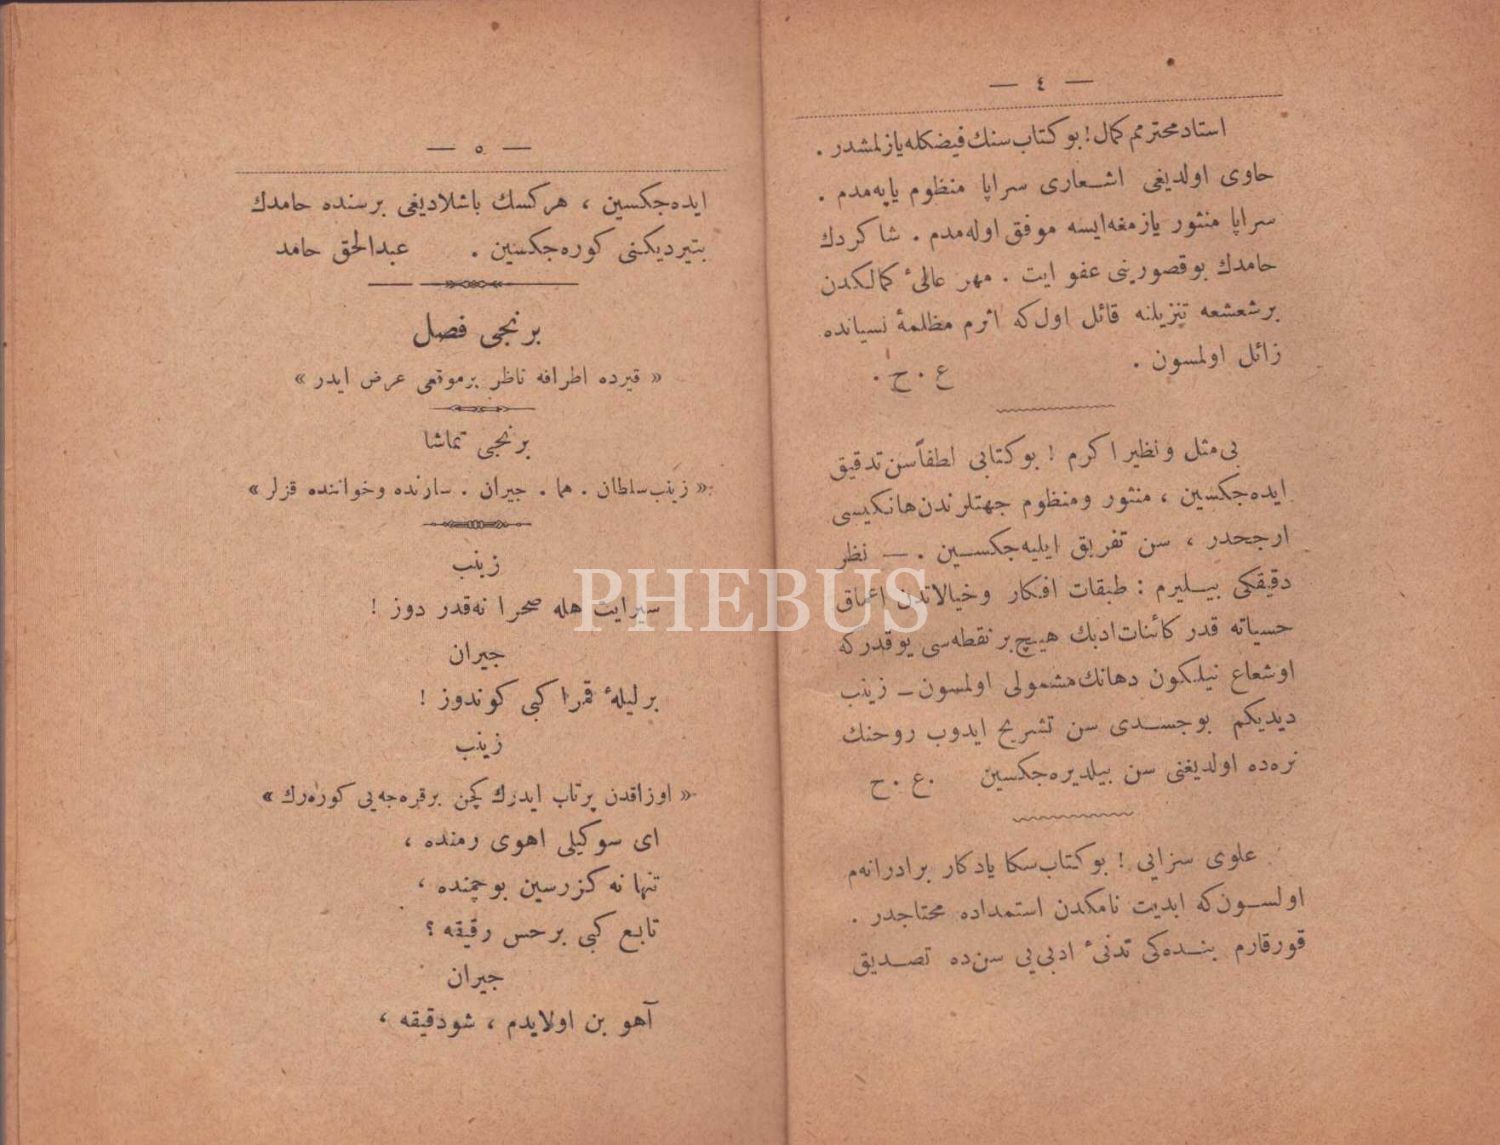 — ٤ —
استاد محترمم كمال ! بو كتاب سنك فيضكله يازلمشدر .
حاوى اولديغى اشعارى سراپا منظوم ياپه‌مدم .
سراپا منثور يازمغه ايسه موفق اوله‌مدم . شاكردك
حامدك بو قصورينى عفو ايت . مهر عالئ كمالكدن
بر شعشعه تنزيلنه قائل اول كه اثرم مظلمهٔ نسيانده
زائل اولمسون .
ع . ح .
بى مثل و نظير اكرم ! بو كتابى لطفاً سن تدقيق
ايده‌جكسين ، منثور ومنظوم جهتلرندن هانكيسى
ارجحدر ، سن تفريق ايليه‌جكسين . — نظر
دقيقكى بيليرم : طبقات افكار وخيالاتدن اعماق
حسياته قدر كائنات ادبك هيچ بر نقطه‌سى يوقدر كه
او شعاع نيلكون دهانك مشمولى اولمسون — زينب
ديديكم بو جسدى سن تشريح ايدوب روحنك
نره‌ده اولديغنى سن بيلديره‌جكسين . ع . ح
علوى سزايى ! بو كتاب سكا يادكار برادرانه‌م
اولسون كه ابديت نامكدن استمداده محتاجدر .
قورقارم بنده‌كى تدنئ ادبى‌يى سن ده تصديق
— ٥ —
ايده‌جكسين ، هركسك باشلاديغى يرسنده حامدك
بتيرديكنى كوره‌جكسين . عبدالحق حامد
برنجى فصل
« قيرده اطرافه ناظر برموقعى عرض ايدر »
برنجى تماشا
« زينب سلطان . هما . جيران . سازنده وخواننده قزلر »
زينب
سير ايت هله صحرا نه‌قدر دوز !
جيران
بر ليلهٔ قمرا كبى كوندوز !
زينب
« اوزاقدن پرتاب ايدرك كچن برقره‌جه‌يى كوره‌رك »
اى سوكيلى اهوى رمنده ،
تنها نه كزرسين بو چمنده ،
تابع كبى بر حس رقيقه ؟
جيران
آهو بن اولايدم ، شو دقيقه ،
PHEBUS